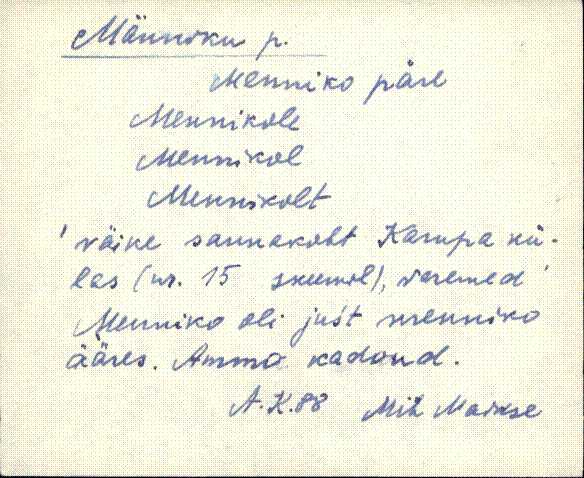 Männiku p.
Menniko päre
Mennikole
Mennikol
Mennikolt
' väike saunakoht Karupa kü-
las (nr. 15 skeemil), varemed '
Menniko oli just menniko
ääres. Ammo kadond.
A.K.88 Mih